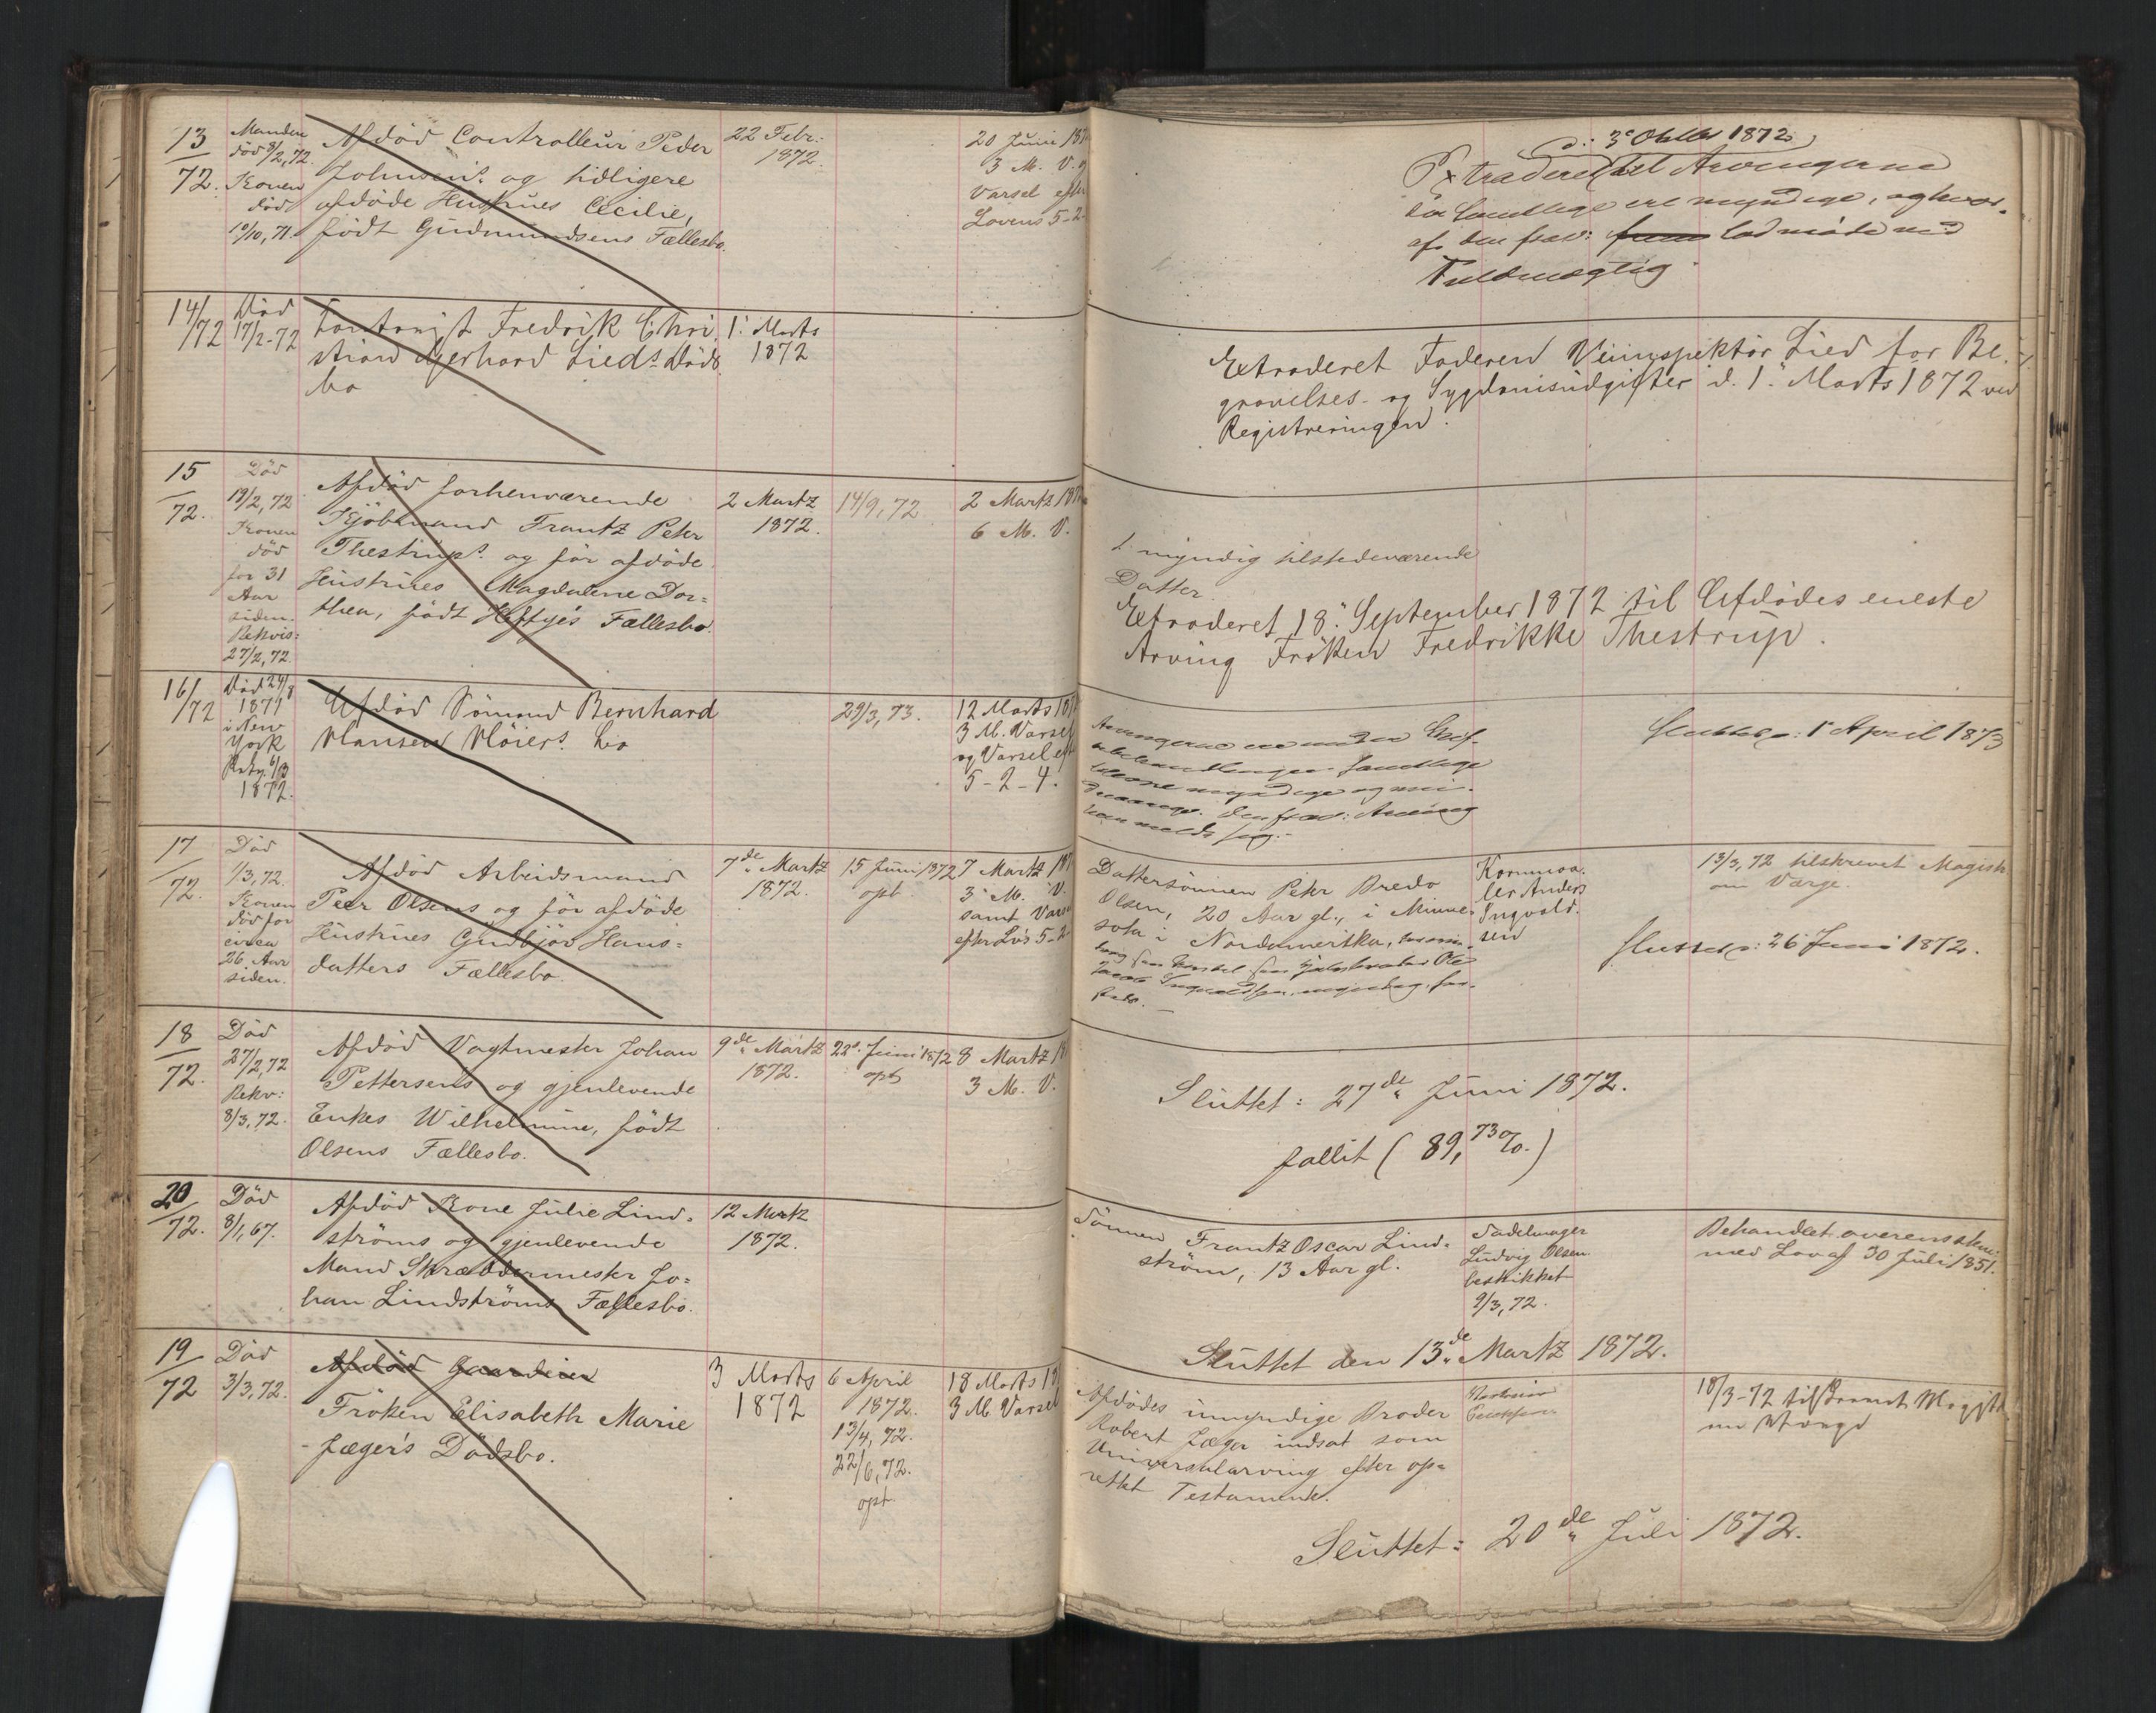 13
72.
Manden
död 8/2, 72.
Konen
död
10/10, 71.
Afdöd Controlleur Peder
Johnsens og tidligere
afdöde Hustrues Cecilie,
födt Gudmundsens Fællesbo.
22 Febr:
1872.
20 Juni 187
3 M. V. o
Varsel efter
Lovens 5-2-
d: 3 Oktbr 1872
Extraderet til Arvingerne
der samtlige ere myndige, og hvor-
af den frav: lod møde med
Fuldmægtig
14/72
Död
17/2-72
Contorist Fredrik Chri
stian Gerhard Lieds Döds
bo
1. Marts
1872
Extraderet Faderen Veiinspektör Lied for Be-
gravelses- og Sygdomsudgifter d. 1. Marts 1872 ved
Registreringen.
15
72.
Död
19/2, 72
Konen
död
for 31
Aar
siden.
Rekvis:
27/2, 72.
Afdöd forhenværende
Kjöbmand Frantz Peter
Thestrups og för afdöde
Hustrues Magdalene Dor=
thea, födt Heftye's Fællesbo.
2 Martz
1872.
14/9, 72.
2 Martz 187
6 M. V.
1 myndig tilstedeværende
Datter.
Extraderet 18. September 1872 til Afdödes eneste
Arving Fröken Fredrikke Thestrup.
16/72
Död 24/8
1871
i New
York
6/3
1872.
Afdöd Sömand Bernhard
Hansen Höiers bo
29/3, 73.
12 Marts 187
3 M. Varsel
og Varsel eft
5-2-4.
Arvingerne ere under Skif-
tebehandlingen samtlige
myndige og
den frav: Arving
har meldt sig.-
Sluttet d: 1 April 1873
17
72.
Död
1/3, 72.
Konen
död for
circa
26 Aar
siden.
Afdöd Arbeidsmand
Peer Olsens og för afdöde
Hustrues Gudbjör Hans=
datters Fællesbo.
7de Martz
1872.
15 Juni 1872
opt
7 Martz 187
3 M. V.
samt Vars
efter Lov's 5-2-
Dattersönnen Peter Bredo
Olsen, 20 Aar gl., i Minne-
sota i Nordamerika,
Ole
Jacob Ingvaldsen,
Kornmaa-
ler Anders
Ingvald-
sen
13/3, 72 tilskrevet Magistr
om Værge.
Sluttet d: 26 Juni 1872.
18
72.
Död
27/2, 72
Rekv:
8/3, 72.
Afdöd Vagtmester Johan
Pettersens og gjenlevende
Enkes Wilhelmine, födt
Olsens Fællesbo.
9de Martz
1872.
22de Juni 1872
opt
8 Martz 18
3 M. V.
Sluttet: 27de Juni 1872.
fallit (89,73%.)
20
72.
Död
8/1, 67.
Afdöd Kone Julie Lind-
ströms og gjenlevende
Mand Skræddermester Jo=
han Lindströms Fællesbo.
12 Martz
1872.
Sönnen Frantz Oscar Lind-
ström, 13 Aar gl.
Sadelmager
Ludvig Olsen
beskikket
9/3, 72.
Behandlet overensstem:
med Lov af 30 Juli 1851.
Sluttet den 13de Martz 1872.
19
72
Död
3/3, 72.
Afdöd
Fröken Elisabeth Marie
Jæger's Dödsbo.
3 Marts
1872
6 April
1872.
13/4, 72.
22/6, 72.
opt.
18 Marts 18
3 M. Varsel
Afdödes umyndige Broder
Robert Jæger indsat som
Universalarving efter op=
rettet Testamente.
18/3-72 tilskrevet Magistr
om Værge
Sluttet: 20de Juli 1872.